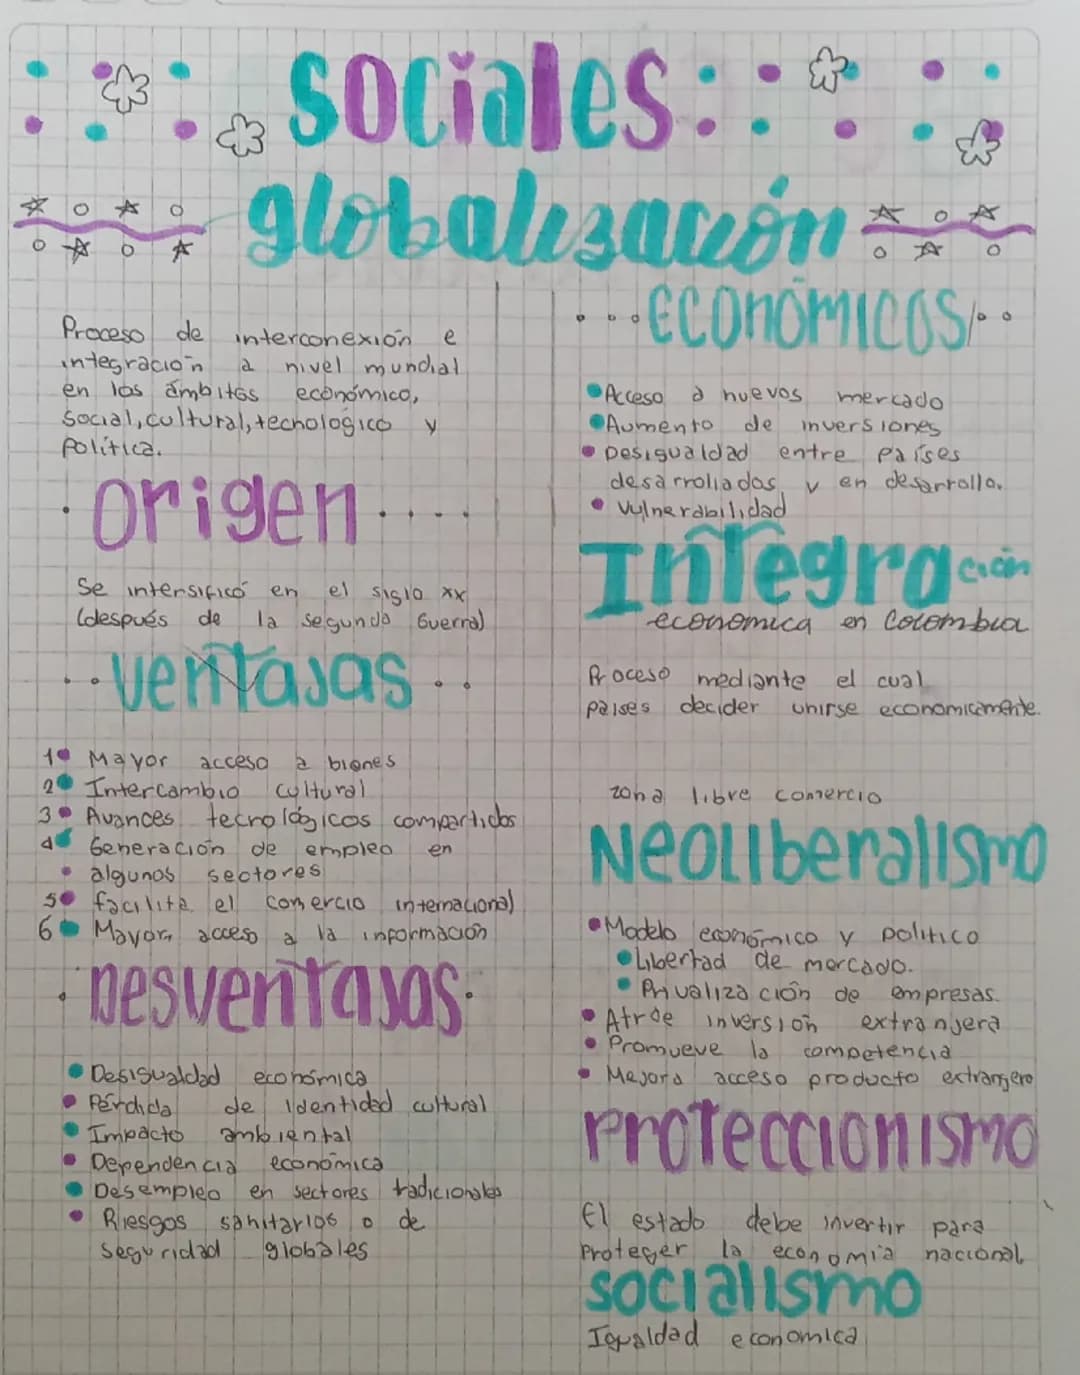 sociales:
globalización
Proceso de interconexión e
integración a nivel mundial
en los ámbitos económico,
Social, cultural, tecnologico y
Politica.
origen
Se intersificó en el siglo xx
(después de la segunda Guerra)
ventajas
1 Mayor acceso a bienes
2 Intercambio cultural
3 Avances tecnológicos compartidos
4 Generación de empleo en
algunos sectores
5 facilita el comercio internacional
6 Mayor acceso a la información
Desventajas
Desigualdad económica
Pérdida de identidad cultural
Impacto ambiental
Dependencia económica
Desempleo en sectores tradicionales
Riesgos sanitarios o de
Seguridad globales
Económicos
Acceso a nuevos mercado
Aumento de inversiones
Desigualdad entre países
desarrollados y en desarrollo.
Vulnerabilidad
Integración
economica en Colombia
Proceso mediante el cual
países decider unirse economicamente.
zona libre comercio
Neoliberalismo
Modelo económico y politico
Libertad de mercado.
Privalización de empresas.
Atrae inversión extranjera
Promueve la competencia
Mejora acceso producto extranjero
Proteccionismo
El estado debe invertir para
Proteger la economia nacional
socialismo
Igualdad economica